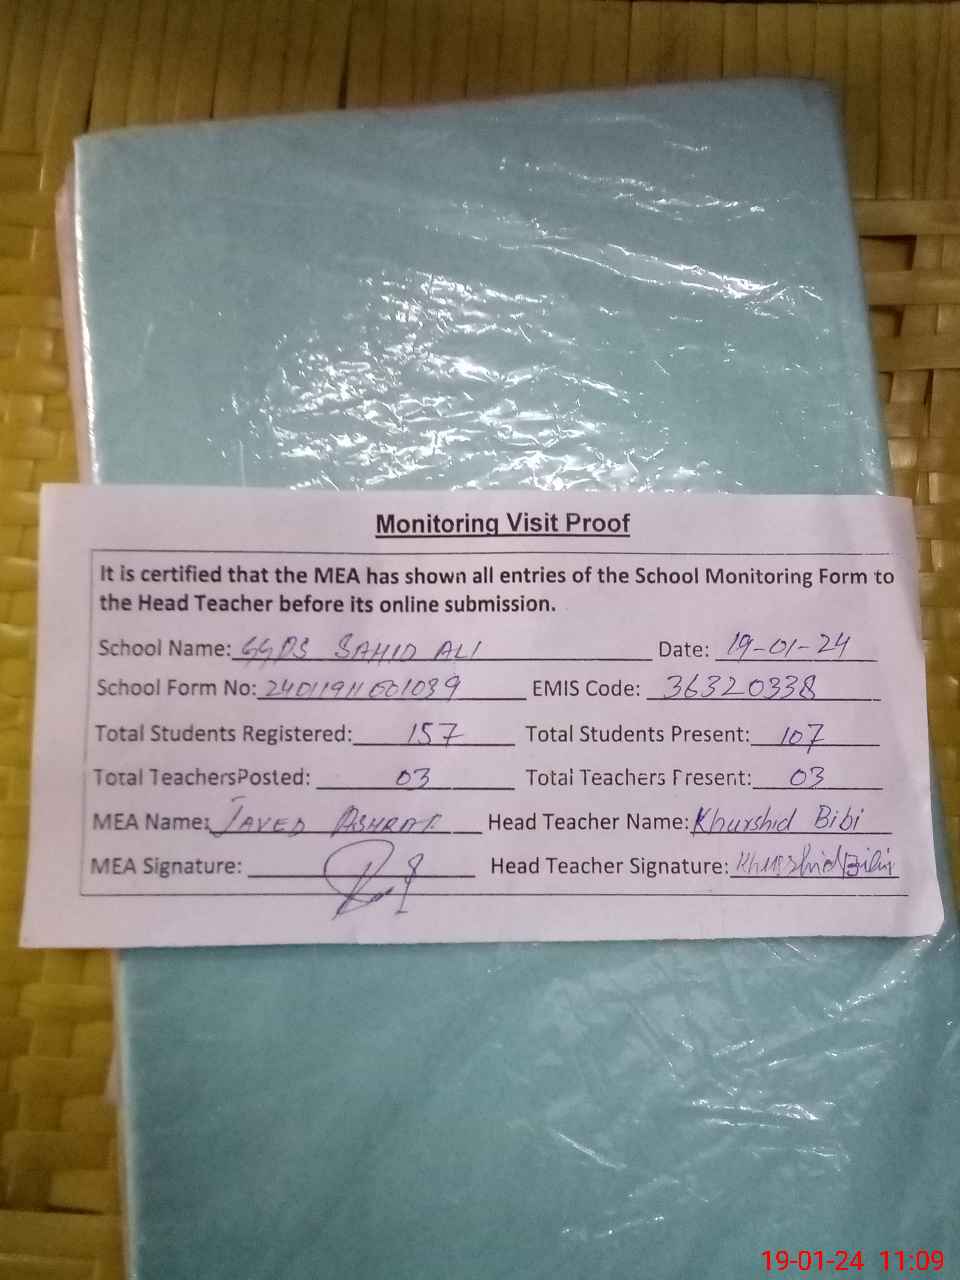 Monitoring Visit Proof
It is certified that the MEA has shown all entries of the School Monitoring Form to
the Head Teacher before its online submission.
School Name: GGPS SAHID ALI Date: 19-01-24
School Form No: EMIS Code: 36320338
Total Students Registered: 157 Total Students Present: 107
Total TeachersPosted: 03 Total Teachers Present: 03
MEA Name: JAVED ASHRAF Head Teacher Name: Khurshid Bibi
MEA Signature: Head Teacher Signature: Khurshid Bibi
19-01-24 11:09